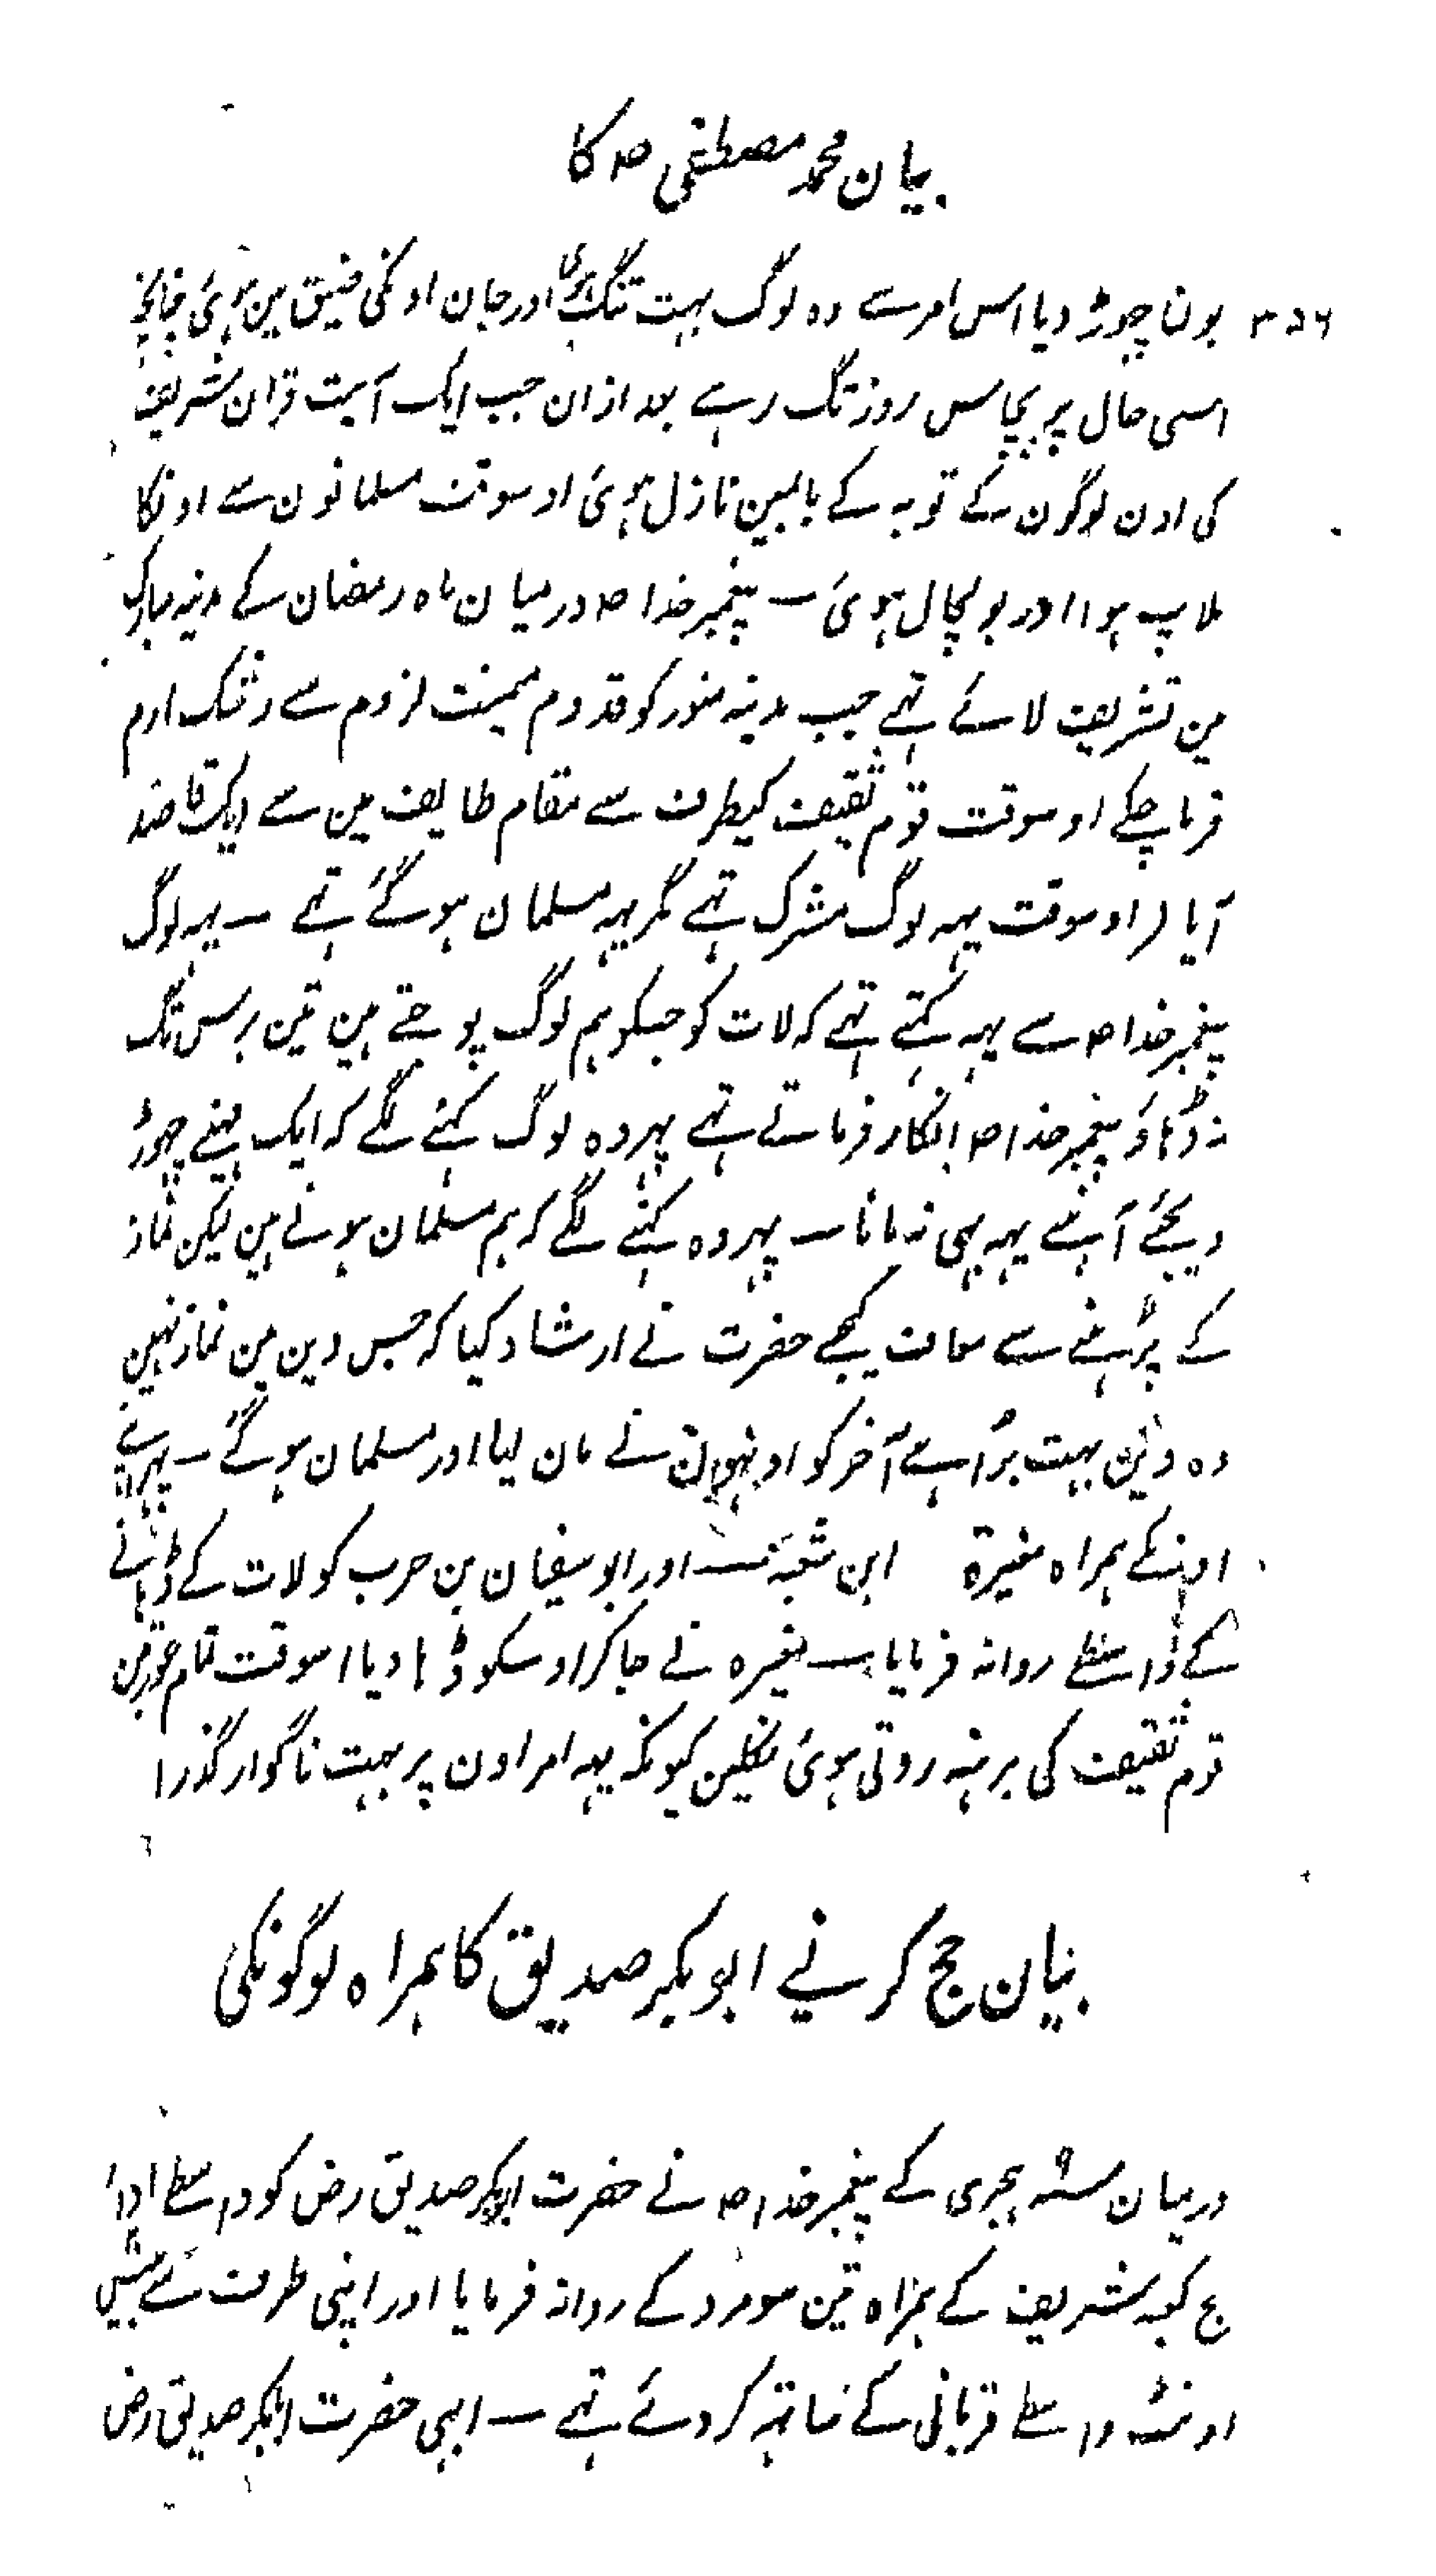 بیان محمد مصطفی ص کا
۳۵۶ بولنا چہوڑ دیا اس امر سے وہ لوگ بہت تنگ ہوئے اور جان اونکی ضیق مین ہوئی چنانچہ
اسی حال پر پچاس روز تک رہے بعد ازان جب ایک آیت قران شریف
کی اون لوگون کے توبہ کے بابمین نازل ہوئی اوسوقت مسلمانون سے اونکا
ملاپ ہوا اور بولچال ہوئی ــ پیغمبر خدا ص درمیان ماہ رمضان کے مدینہ مبارک
مین تشریف لائے تہے جب مدینہ منور کو قدوم میمنت لزوم سے رشک ارم
فرما چکے اوسوقت قوم ثقیف کیطرف سے مقام طایف مین سے ایک قاصد
آیا ( اوسوقت یہہ لوگ مشرک تہے مگر یہہ مسلمان ہو گئے تہے ــ یہہ لوگ
پیغمبر خدا ص سے یہہ کہتے تہے کہ لات کو جسکو ہم لوگ پوجتے ہین تین برس تک
نہ ڈہاؤ پیغمبر خدا ص انکار فرماتے تہے پہر وہ لوگ کہنے لگے کہ ایک مہینے چہوڑ
دیجئے آپنے یہہ بہی نہ مانا ــ پہر وہ کہنے لگے کہ ہم مسلمان ہوتے ہین لیکن نماز
کے پڑہنے سے معاف کیجے حضرت نے ارشاد کیا کہ جس دین مین نماز نہین
وہ دین بہت برا ہے آخر کو اونہون نے مان لیا اور مسلمان ہو گئے ــ پہر آپنے
اونکے ہمراہ مغیرة ابن شعبہ اور ابو سفیان بن حرب کو لات کے ڈہانے
کے واسطے روانہ فرمایا ــ مغیرہ نے جا کر اوسکو ڈہا دیا اسوقت تمام عورتین
قوم ثقیف کی برہنہ روتی ہوئی نکلین کیونکہ یہہ امر اون پر بہت ناگوار گذرا
بیان حج کرنے ابوبکر صدیق کا ہمراہ لوگونکی
درمیان سنہ ۹ ہجری کے پیغمبر خدا ص نے حضرت ابوبکر صدیق رض کو واسطے اداء
حج کعبہ شریف کے ہمراہ تین سو مرد کے روانہ فرمایا اور اپنی طرف سے بیس
اونٹ واسطے قربانی کے ساتہہ کر دئے تہے ــ ابہی حضرت ابوبکر صدیق رض